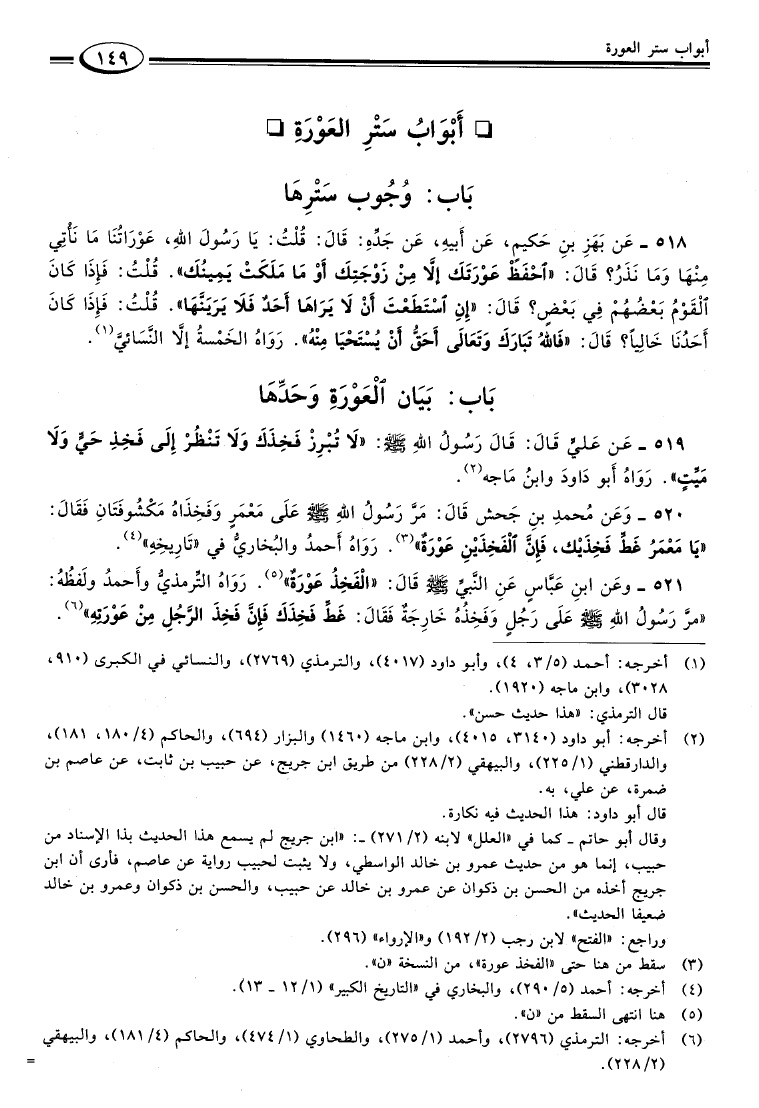 أبواب ستر العورة
١٤٩
❑ أَبْوَابُ سَتْرِ العَوْرَةِ ❑
بَاب: وُجُوب سَتْرِهَا
٥١٨ ـ عَن بَهْزِ بنِ حَكيمٍ، عَن أَبيهِ، عَن جَدِّهِ: قَالَ: قُلْتُ: يَا رَسُولَ اللهِ، عَوْرَاتُنَا مَا نَأْتِي
مِنْهَا وَمَا نَذَرُ؟ قَالَ: «ٱحْفَظْ عَوْرَتَكَ إلَّا مِنْ زَوْجَتِكَ أَوْ مَا مَلَكَتْ يَمِينُكَ». قُلْتُ: فَإذَا كَانَ
ٱلْقَوْمُ بَعْضُهُمْ فِي بَعْضٍ؟ قَالَ: «إنِ ٱسْتَطَعْتَ أَنْ لَا يَرَاهَا أَحَدٌ فَلَا يَرَيَنَّهَا». قُلْتُ: فَإذَا كَانَ
أَحَدُنَا خَالِياً؟ قَالَ: «فَاللهُ تَبَارَكَ وَتَعَالَى أَحَقُّ أَنْ يُسْتَحْيَا مِنْهُ». رَوَاهُ الخَمْسةُ إلَّا النَّسَائيَّ(١).
بَاب: بَيَان ٱلْعَوْرَةِ وَحَدِّهَا
٥١٩ ـ عَن عَليٍّ قَالَ: قَالَ رَسُولُ اللهِ ﷺ: «لَا تُبْرِزْ فَخِذَكَ وَلَا تَنْظُرْ إلَى فَخِذِ حَيٍّ وَلَا
مَيِّتٍ». رَوَاهُ أبو دَاودَ وابنُ مَاجه(٢).
٥٢٠ ـ وَعَن مُحمدِ بنِ جَحشٍ قَالَ: مَرَّ رَسُولُ اللهِ ﷺ عَلَى مَعْمَرٍ وَفَخِذَاهُ مَكْشُوفَتَانِ فَقَالَ:
«يَا مَعْمَرُ غَطِّ فَخِذَيْكَ، فَإنَّ ٱلْفَخِذَيْنِ عَوْرَةٌ»(٣). رَوَاهُ أحمدُ والبُخاريُّ في «تَاريخِهِ»(٤).
٥٢١ ـ وعَن ابنِ عَبَّاسٍ عَنِ النَّبيِّ ﷺ قَالَ: «الْفَخِذُ عَوْرَةٌ»(٥). رَوَاهُ التِّرمذيُّ وأحمدُ ولَفظُهُ:
«مرَّ رَسُولُ اللهِ ﷺ عَلَى رَجُلٍ وَفَخِذُهُ خَارِجَةٌ فَقَالَ: غَطِّ فَخِذَكَ فَإنَّ فَخِذَ الرَّجُلِ مِنْ عَوْرَتِهِ»(٦).
(١) أخرجه: أحمد (٥/ ٣، ٤)، وأبو داود (٤٠١٧)، والترمذي (٢٧٦٩)، والنسائي في الكبرى (٩١٠،
٣٠٢٨)، وابن ماجه (١٩٢٠).
قال الترمذي: «هذا حديث حسن».
(٢) أخرجه: أبو داود (٣١٤٠، ٤٠١٥)، وابن ماجه (١٤٦٠) والبزار (٦٩٤)، والحاكم (٤/ ١٨٠، ١٨١)،
والدارقطني (١/ ٢٢٥)، والبيهقي (٢/ ٢٢٨) من طريق ابن جريج، عن حبيب بن ثابت، عن عاصم بن
ضمرة، عن علي، به.
قال أبو داود: هذا الحديث فيه نكارة.
وقال أبو حاتم ـ كما في «العلل» لابنه (٢/ ٢٧١) ـ: «ابن جريج لم يسمع هذا الحديث بذا الإسناد من
حبيب، إنما هو من حديث عمرو بن خالد الواسطي، ولا يثبت لحبيب رواية عن عاصم، فأرى أن ابن
جريج أخذه من الحسن بن ذكوان عن عمرو بن خالد عن حبيب، والحسن بن ذكوان وعمرو بن خالد
ضعيفا الحديث».
وراجع: «الفتح» لابن رجب (٢/ ١٩٢) و«الإرواء» (٢٩٦).
(٣) سقط من هنا حتى «الفخذ عورة»، من النسخة «ن».
(٤) أخرجه: أحمد (٥/ ٢٩٠)، والبخاري في «التاريخ الكبير» (١/ ١٢ ـ ١٣).
(٥) هنا انتهى السقط من «ن».
(٦) أخرجه: الترمذي (٢٧٩٦)، وأحمد (١/ ٢٧٥)، والطحاوي (١/ ٤٧٤)، والحاكم (٤/ ١٨١)، والبيهقي
(٢/ ٢٢٨). =